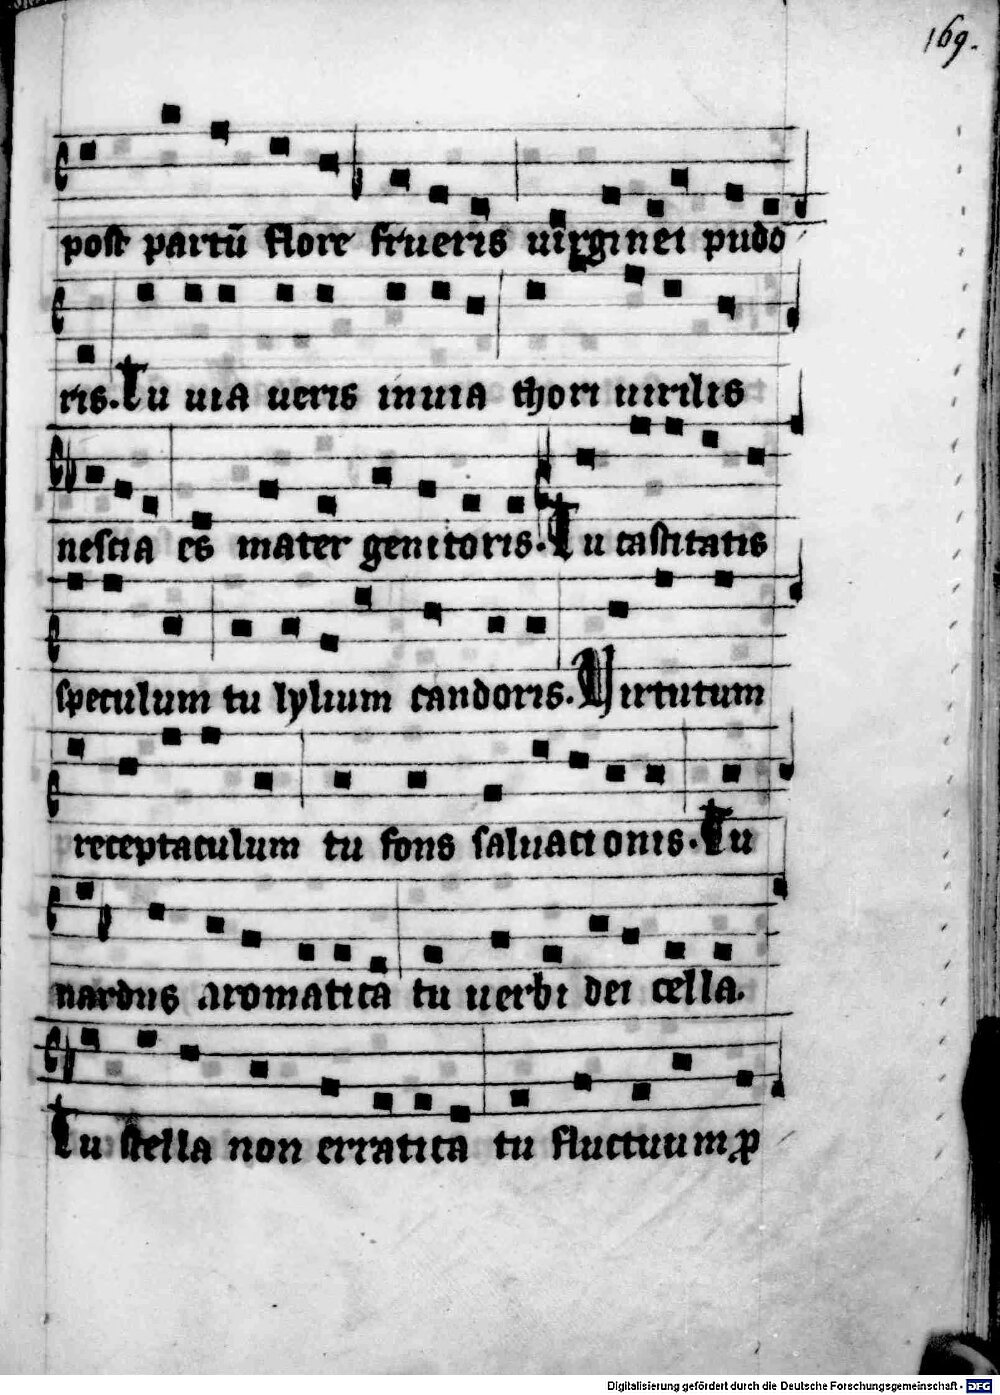 169.
post partū flore frueris uirginei pudo
ris. Tu uia ueris inuia thori uirilis
nescia es mater genitoris. Tu castitatis
speculum tu lylium candoris. Uirtutum
receptaculum tu fons saluationis. Tu
nardus aromatica tu uerbi dei cella.
Tu stella non erratica tu fluctuum ꝓ
Digitalisierung gefördert durch die Deutsche Forschungsgemeinschaft - DFG